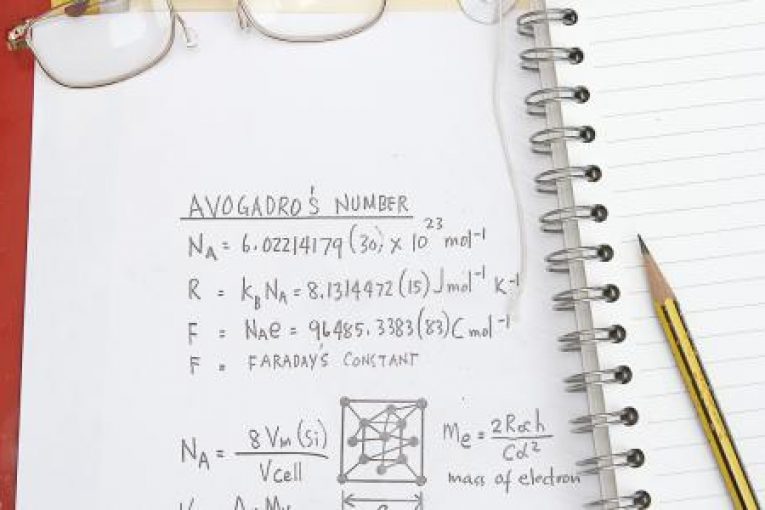 AVOGADRO'S NUMBER
N_A = 6.02214179(30) × 10^23 mol^-1
R = k_B N_A = 8.1314472(15) J mol^-1 K^-1
F = N_A e = 96485.3383(83) C mol^-1
F = FARADAY'S CONSTANT
N_A = 8 V_m (Si) / V cell
M_e = 2 R∞ h / Cα^2
mass of electron
a